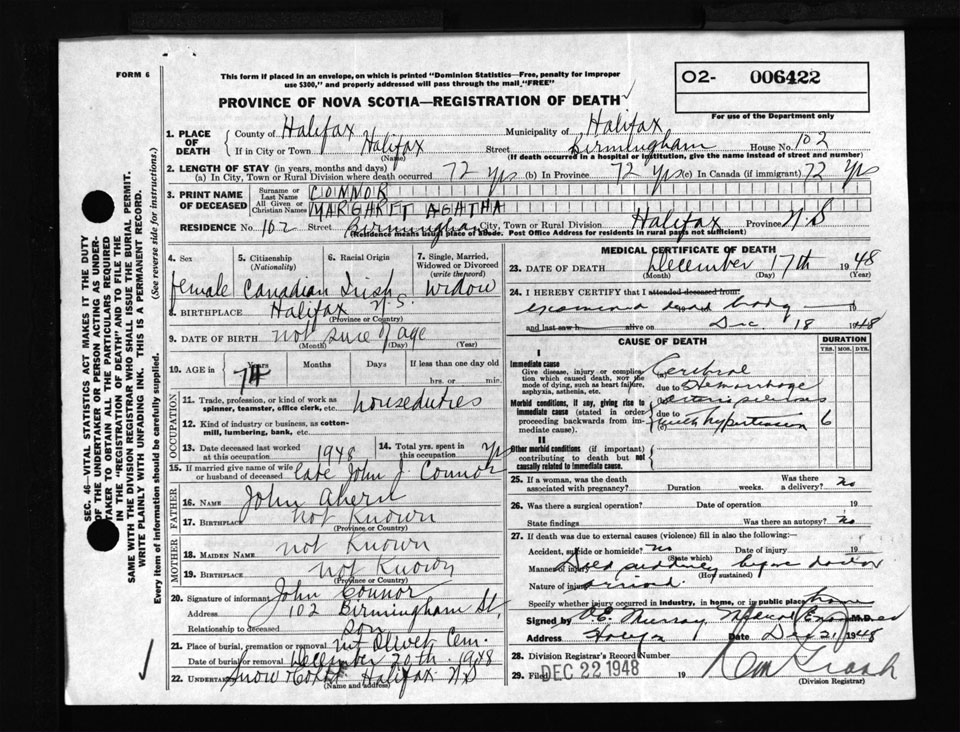 FORM 6
This form if placed in an envelope, on which is printed "Dominion Statistics—Free, penalty for improper
use $300," and properly addressed will pass through the mail "FREE"
02- 006422
For use of the Department only
PROVINCE OF NOVA SCOTIA—REGISTRATION OF DEATH
1. PLACE OF DEATH { County of Halifax Municipality of Halifax
If in City or Town Halifax Street Birmingham House No. 102
(Name) (If death occurred in a hospital or institution, give the name instead of street and number)
2. LENGTH OF STAY (in years, months and days)
(a) In City, Town or Rural Division where death occurred 72 yrs (b) In Province 72 yrs (c) In Canada (if immigrant) 72 yrs
3. PRINT NAME OF DECEASED { Surname or Last Name CONNOR
All Given or Christian Names MARGARET AGATHA
RESIDENCE No. 102 Street Birmingham City, Town or Rural Division Halifax Province N.S
(Residence means usual place of abode. Post Office Address for residents in rural parts not sufficient)
4. Sex female
5. Citizenship (Nationality) Canadian
6. Racial Origin Irish
7. Single, Married, Widowed or Divorced (write the word) Widow
8. BIRTHPLACE Halifax N.S.
(Province or Country)
9. DATE OF BIRTH not sure of age
(Month) (Day) (Year)
10. AGE in { Years 74 Months Days If less than one day old
hrs. or min.
OCCUPATION
11. Trade, profession, or kind of work as spinner, teamster, office clerk, etc. houseduties
12. Kind of industry or business, as cotton-mill, lumbering, bank, etc.
13. Date deceased last worked at this occupation 1948
14. Total yrs. spent in this occupation
15. If married give name of wife or husband of deceased late John J. Connor
FATHER
16. NAME John Ahern
17. BIRTHPLACE not Known
(Province or Country)
MOTHER
18. MAIDEN NAME not Known
19. BIRTHPLACE not Known
(Province or Country)
20. Signature of informant John Connor
Address 102 Birmingham St,
Relationship to deceased son
21. Place of burial, cremation or removal Mt Olivet Cem.
Date of burial or removal December 20th 1948
22. UNDERTAKER Snow & Co Ltd Halifax N.S
(Name and address)
MEDICAL CERTIFICATE OF DEATH
23. DATE OF DEATH December 17th 1948
(Month) (Day) (Year)
24. I HEREBY CERTIFY that I attended deceased from:
examined dead body 19
and last saw h alive on Dec. 18 1948
CAUSE OF DEATH
DURATION
YRS. MOS. DYS.
I
Immediate cause
Give disease, injury or complication which caused death, not the mode of dying, such as heart failure, asphyxia, asthenia, etc.
(a) Cerebral
due to Hemorrhage
Morbid conditions, if any, giving rise to immediate cause (stated in order proceeding backwards from immediate cause).
due to
(c) with hypertension 6
II
Other morbid conditions (if important) contributing to death but not causally related to immediate cause.
25. If a woman, was the death associated with pregnancy? Duration weeks. Was there a delivery? no
26. Was there a surgical operation? Date of operation 19
State findings Was there an autopsy? no
27. If death was due to external causes (violence) fill in also the following:
Accident, suicide or homicide? No Date of injury 19
(State which)
Manner of injury Died suddenly before doctor
(How sustained)
Nature of injury arrived.
Specify whether injury occurred in industry, in home, or in public place home
Signed by Murray Medical Examiner M.D.
Address Halifax Date Dec 21 1948
28. Division Registrar's Record Number
29. Filed DEC 22 1948 19
(Division Registrar)
SEC. 46—VITAL STATISTICS ACT MAKES IT THE DUTY
OF THE UNDERTAKER OR PERSON ACTING AS UNDER-
TAKER TO OBTAIN ALL THE PARTICULARS REQUIRED
IN THE "REGISTRATION OF DEATH" AND TO FILE THE
SAME WITH THE DIVISION REGISTRAR WHO SHALL ISSUE THE BURIAL PERMIT.
WRITE PLAINLY WITH UNFADING INK. THIS IS A PERMANENT RECORD.
Every item of information should be carefully supplied. (See reverse side for instructions.)